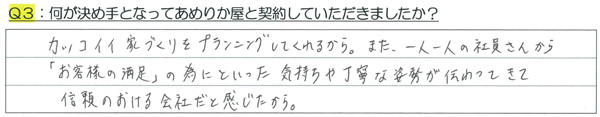 Q3:何が決め手となってあめりか屋と契約していただきましたか?
カッコイイ家づくりをプランニングしてくれるから。また、一人一人の社員さんから
「お客様の満足」の為にといった気持ちや丁寧な姿勢が伝わってきて
信頼のおける会社だと感じたから。